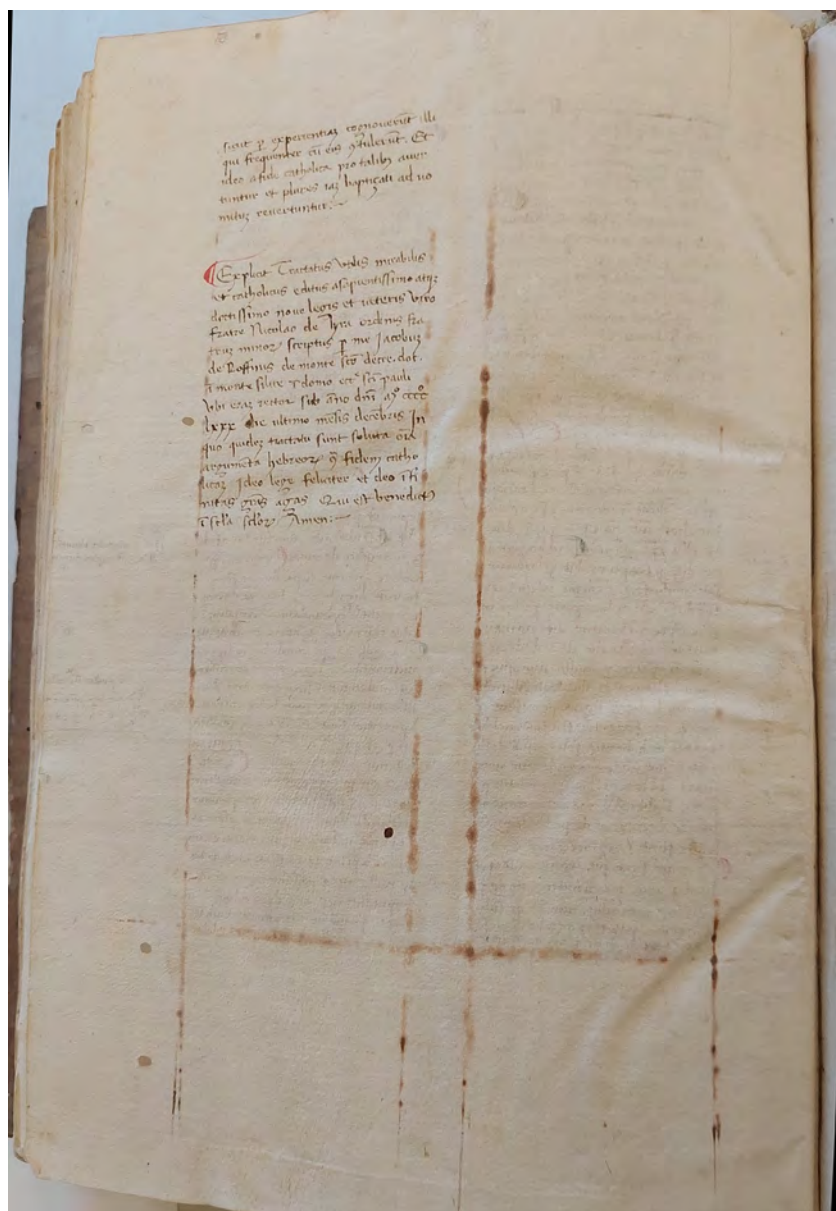 sicut ꝑ experientiaz cognouerūt illi
qui frequenter cū eis ꝯtulerūt. Et
ideo a fide catholica pro talibꝫ auer
tuntur et plures iaꝫ baptiçati ad uo
mituꝫ reuertuntur:~
Explicit Tractatus Vtilis mirabilis
et catholicus editus a sapientissimo atqꝫ
doctissimo noue legis et ueteris viro
fratre Nicolao de lyra ordinis fra
truꝫ minoꝝ scriptus ꝑ me Jacobuꝫ
de Roffinis de monte sco decre. dot.
ī monte silice ī domo ecc sci pauli
Vbi eraꝫ rector sub āno dnī Mo cccco
lxxx die ultimo mēsis decēbris In
quo quideꝫ tractatu sunt soluta oīa
argumēta hebreoꝝ ꝯ fidem catho
licaꝫ Ideo lege feliciter et deo īfi
nitas grās agas Qui est benedictꝰ
ī scla scloꝝ Amen:~